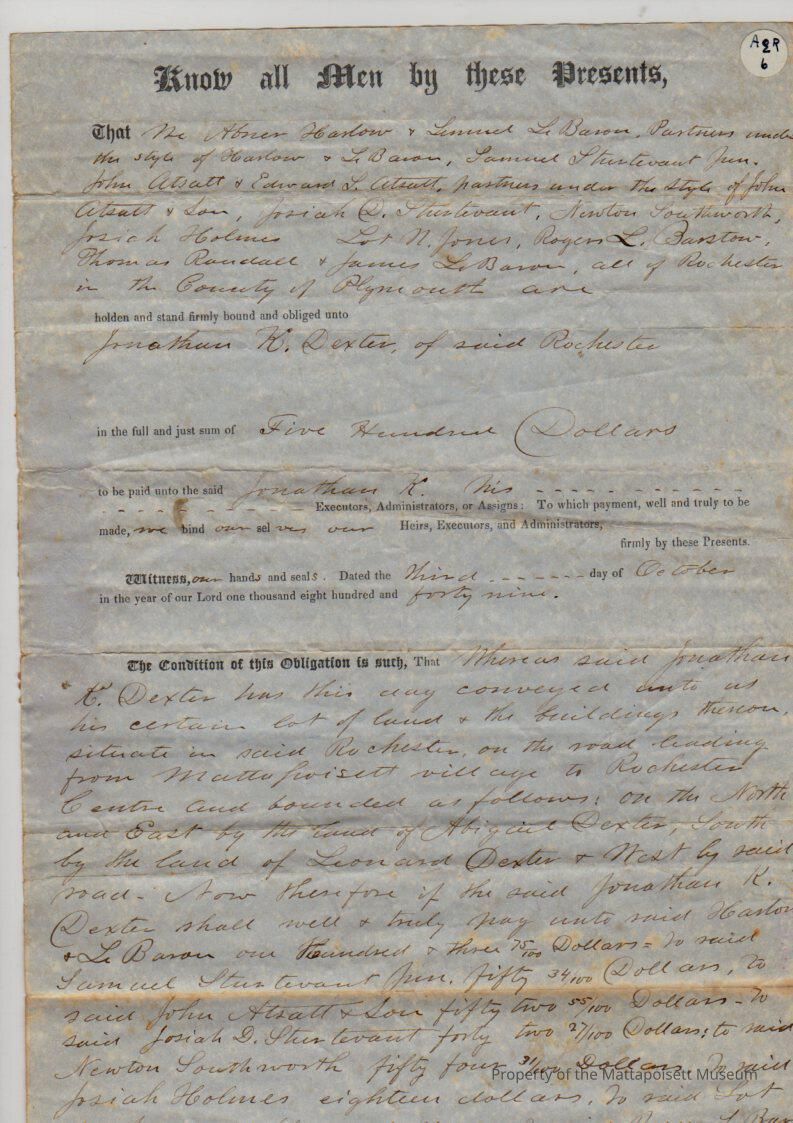 A2R
6
Know all Men by these Presents,
That We Abner Harlow & Lemuel LeBaron, Partners under
the style of Harlow & LeBaron, Samuel Sturtevant Jun.
John Atsatt & Edward L. Atsatt, partners under the style of John
Atsatt & Son, Josiah D. Sturtevant, Newton Southworth,
Josiah Holmes Lot N. Jones, Rogers L. Barstow,
Thomas Randall & James LeBaron, all of Rochester
in the County of Plymouth are
holden and stand firmly bound and obliged unto
Jonathan K. Dexter, of said Rochester
in the full and just sum of Five Hundred Dollars
to be paid unto the said Jonathan K. his
Executors, Administrators, or Assigns: To which payment, well and truly to be
made, we bind our selves our Heirs, Executors, and Administrators,
firmly by these Presents.
Witness, our hands and seals. Dated the Third day of October
in the year of our Lord one thousand eight hundred and forty nine.
The Condition of this Obligation is such, That Whereas said Jonathan
K. Dexter has this day conveyed unto us
his certain lot of land & the buildings thereon,
situate in said Rochester, on the road leading
from Mattapoisett village to Rochester
Centre and bounded as follows: on the North
and East by the land of Abigail Dexter, South
by the land of Leonard Dexter & West by said
road - Now therefore if the said Jonathan K.
Dexter shall well & truly pay unto said Harlow
& LeBaron one hundred & three 75/100 Dollars = To said
Samuel Sturtevant Jun. fifty 34/100 Dollars, To
said John Atsatt & Son fifty two 55/100 Dollars - To
said Josiah D. Sturtevant forty two 27/100 Dollars; to said
Newton Southworth fifty four 31/100 Dollars To said
Property of the Mattapoisett Museum
Josiah Holmes eighteen dollars, To said Lot